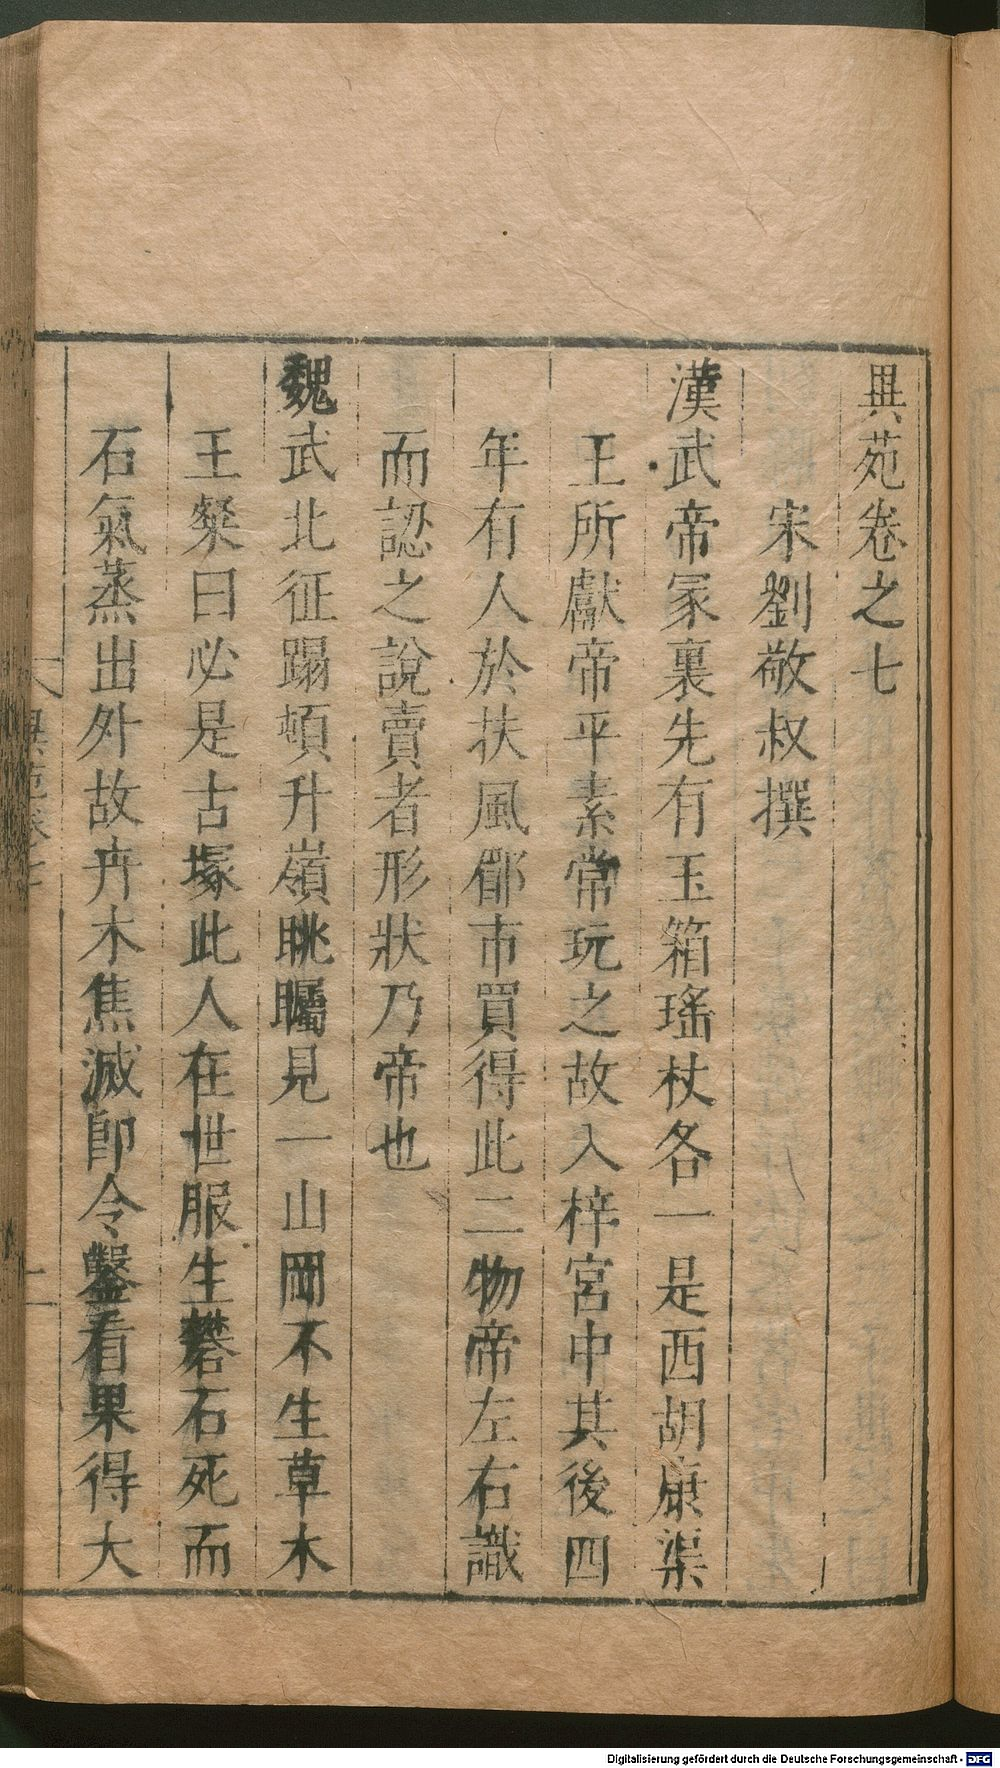 異苑卷之七
宋劉敬叔撰
漢武帝冢裏先有玉箱瑤杖各一是西胡康渠
王所獻帝平素常玩之故入梓宮中其後四
年有人於扶風郿市買得此二物帝左右識
而認之說賣者形狀乃帝也
魏武北征蹋頓升嶺眺矚見一山岡不生草木
王粲曰必是古塚此人在世服生礬石死而
石氣蒸出外故卉木焦滅卽令鑿看果得大
Digitalisierung gefördert durch die Deutsche Forschungsgemeinschaft - DFG